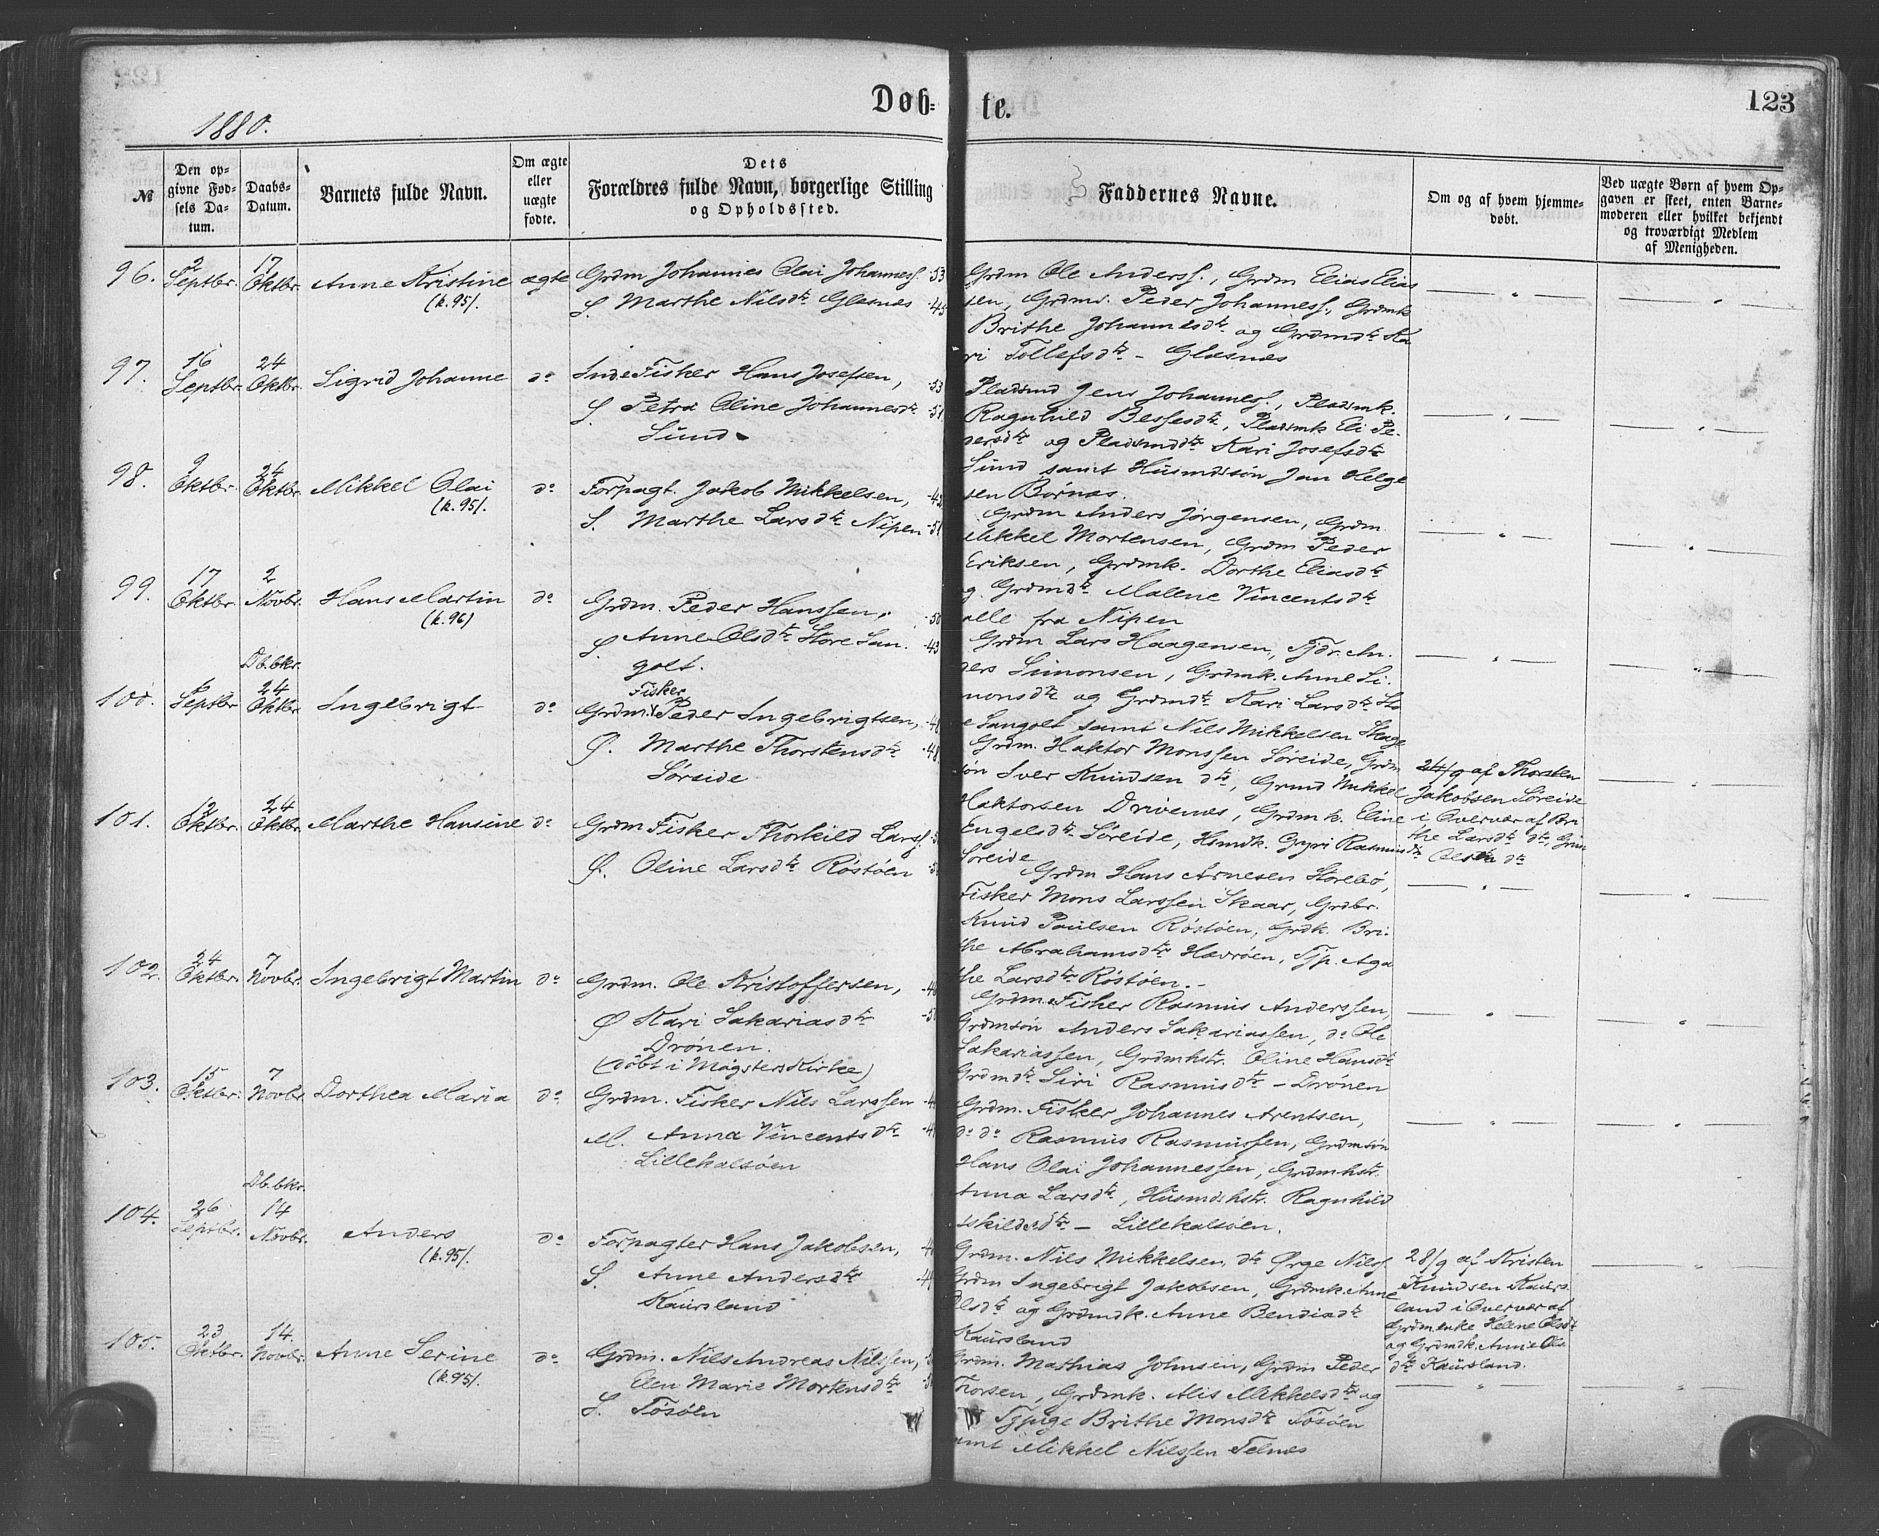 Døb=
te.
123
1880.
№
Den op-
givne Fød-
sels Da-
tum.
Daabs-
Datum.
Barnets fulde Navn.
Om ægte
eller
uægte
fødte.
Dets
Forældres fulde Navn, borgerlige Stilling
og Opholdssted.
Faddernes Navne.
Om og af hvem hjemme-
døbt.
Ved uægte Børn af hvem Op-
gaven er skeet, enten Barne-
moderen eller hvilket bekjendt
og troværdigt Medlem
af Menigheden.
96. 2 Septbr. 17 Oktbr. Anne Kristine ægte Grdm Johannes Olai Johannesf. -53
(k. 95).
S. Marthe Nilsdtr Glesnæs -45
Grdm Ole Andersf., Grdm Elias Elias
sen, Grdm. Peder Johannesf., Grdmk
Brithe Johannesdtr og Grdmdtr Ka
ri Tollefsdtr - Glesnæs
97. 16 Septbr. 24 Oktbr. Sigrid Johanne do Inds Fisker Hans Josefsen, -53
S. Petra Oline Johannesdtr -51
Sund
Pladsmd Jens Johannesf., Pladsmk.
Ragnhild Bessesdtr, Pladsmk Eli Pe-
dersdtr og Pladsmdtr Kari Josefsdtr
Sund samt Husmdssøn Jan Helge
sen Børnæs.
98. 9 Oktbr. 24 Oktbr. Mikkel Olai do Forpagt. Jakob Mikkelsen, -42
(k. 95).
S. Marthe Larsdtr Nipen -51
Grdm Anders Jørgensen, Grdm
Mikkel Mortensen, Grdm Peder
Eriksen, Grdmk. Dorthe Eliasdtr
og Grdmdtr Malene Vincentsdtr
alle fra Nipen
99. 17 Oktbr. 2 Novbr. Hans Martin do Grdm. Peder Hanssen, -50
(k. 96)
S. Anne Olsdtr Store San- -43
golt.
Grdm Lars Haagensen, Tjdr. An-
ders Simonsen, Grdmk. Anne Si-
monsdtr og Grdmdtr Kari Larsdtr Sto
re Sangolt samt Nils Mikkelsen Skage
100. 6 Septbr Db. bkr. 24 Oktbr. Ingebrigt do Grdm. Fisker Peder Ingebrigtsen,
Ø. Marthe Thorstensdtr -48
Søreide
Grdm. Haktor Monssen Søreide, Grdm
søn Iver Knudsen dto, Grmd Mikkel
Haktorsen Drivenes, Grdmk. Eline
Engelsdtr Søreide, Hsmdk. Gyri Rasmusdtr
Søreide
24/9 af Thorsten
Jakobsen Søreide
i Overvær af Bri
the Larsdtr do, Grim
Olsen do
101. 12 Oktbr. 24 Oktbr. Marthe Hansine do Grdm Fisker Thorkild Larsf.
Ø. Oline Larsdtr Røstøen
Grdm Hans Arnesen Storebø,
Fisker Mons Larssen Skaar, Grdbr.
Knud Poulsen Røstøen, Grdk. Bri-
the Abrahamsdtr Hevrøen, Tjp. Aga
the Larsdtr Røstøen. -
102. 24 Oktbr. 7 Novbr. Ingebrigt Martin do Grdm. Ole Kristoffersen,
Ø Kari Sakariasdtr
Drønen.
(døbt i Møgsters Kirke)
Grdm. Fisker Rasmus Anderssen,
Grdmsøn Anders Sakariassen, do Ole
Sakariassen, Grdmhstr. Oline Hansdtr
Grdmdtr Siri Rasmusdtr - Drønen
103. 15 Oktbr. 7 Novbr. Dorthea Maria do Grdm. Fisker Nils Larssen
M. Anna Vincentsdtr
Lillekalsøen
Grdm. Fisker Johannes Arentsen,
do do Rasmus Rasmussen, Grdmsøn
Hans Olai Johannessen, Grdmhstr.
Anna Larsdtr, Husmdhstr. Ragnhild
Askildsdtr - Lillekalsøen.
104. 26 Septbr. Db. bkr. 14 Novbr. Anders do Forpagter Hans Jakobsen,
(k. 95).
S. Anne Andersdtr
Kausland
Grdm. Nils Mikkelsen, do Ørge Nilsf.
Grdm Ingebrigt Jakobsen, Grdmk. Anne
Olsdtr og Grdmdk. Anne Bendiadtr
Kausland
28/9 af Kristen
Knudsen Kaurs
land i Overvær af
Grdmenke Helene Olsdtr
og Grdmdk. Anne Ols
dtr Kausland.
105. 23 Oktbr. 14. Novbr. Anne Serine do Grdm. Nils Andreas Nilssen,
(k. 95).
Elen Marie Mortensdtr
S. Tøsøen
Grdm. Mathias Johnsen, Grdm Peder
Thorsen, Grdmk. Alis Mikkelsdtr og
Tjpige Brithe Monsdtr Tøsøen
samt Mikkel Nilssen Telnæs